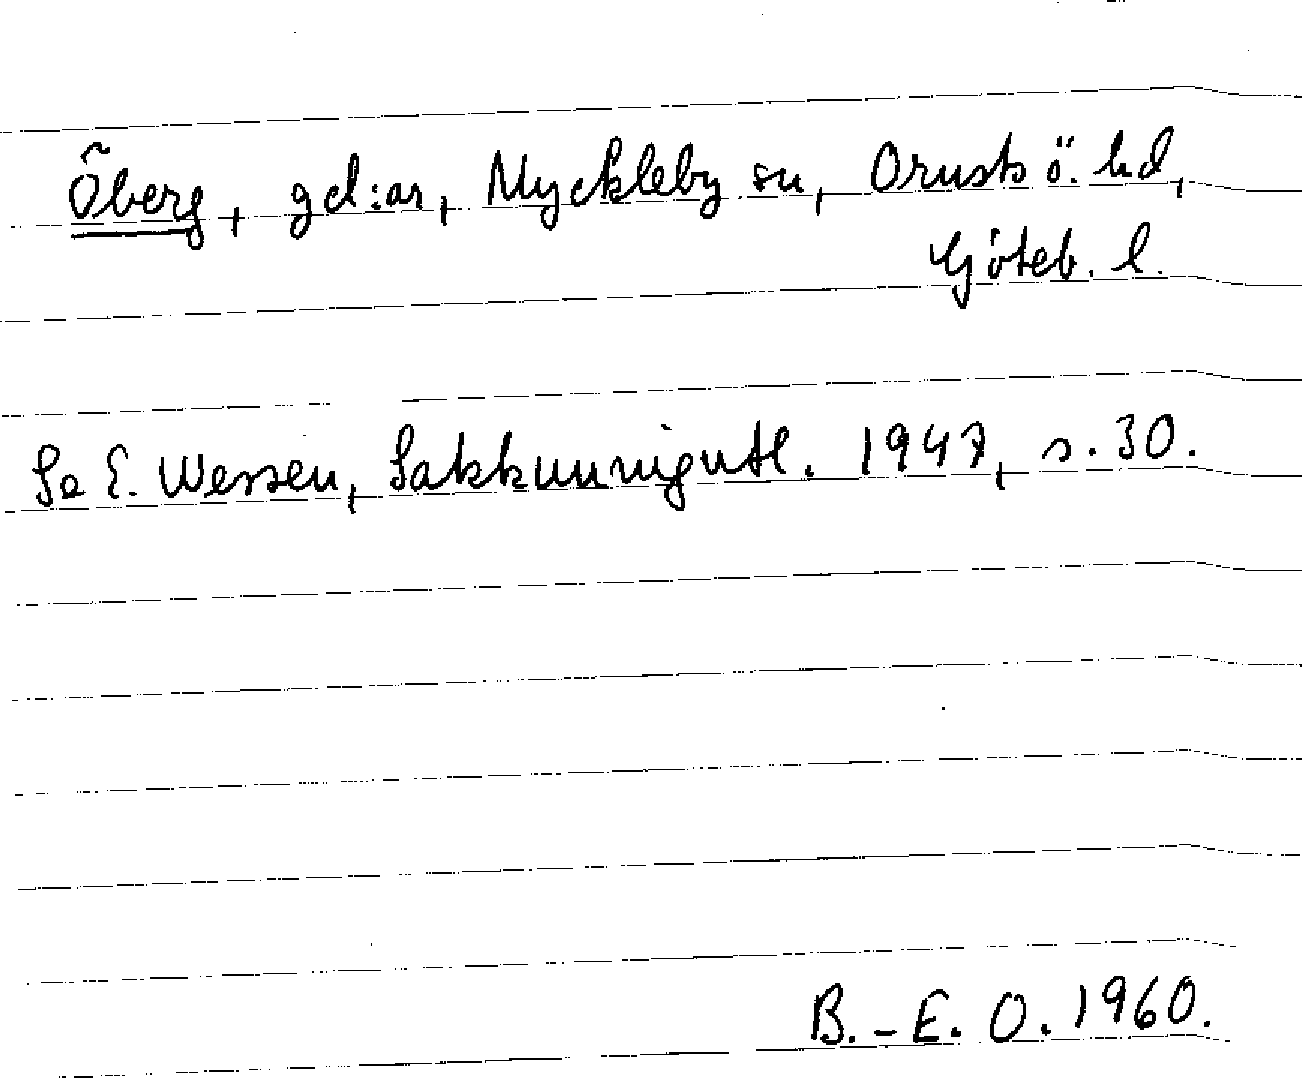 Öberg, gd:ar, Myckleby sn, Orusts ö. hd,
Göteb. l.
Se E. Wessen, Sakkunnigutl. 1947, s. 30.
B.-E. O. 1960.